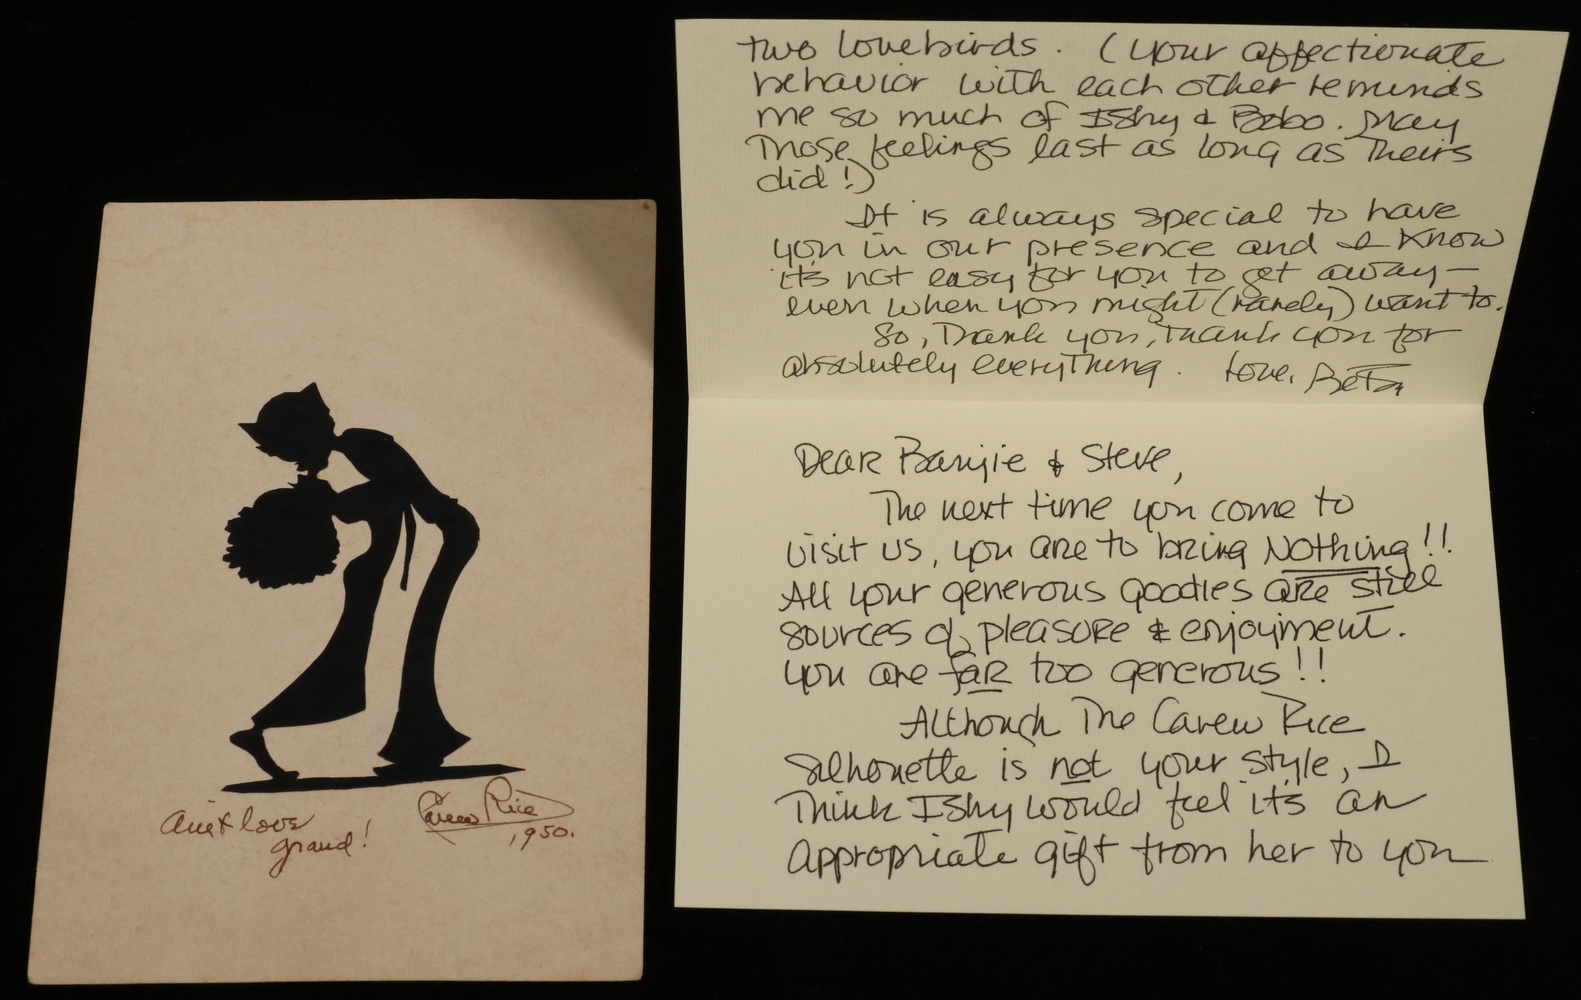 Ain't love
grand!
Carew Rice
1950.
two lovebirds. (Your affectionate
behavior with each other reminds
me so much of Ishy & Bobo. May
those feelings last as long as theirs
did!)
It is always special to have
you in our presence and I know
it's not easy for you to get away —
even when you might (rarely) want to.
So, Thank you, thank you for
absolutely everything. Love, Betsy
Dear Banjie & Steve,
The next time you come to
visit us, you are to bring Nothing!!
All your generous goodies are still
sources of pleasure & enjoyment.
You are far too generous!!
Although The Carew Rice
Silhouette is not your style, I
Think Ishy would feel it's an
appropriate gift from her to you